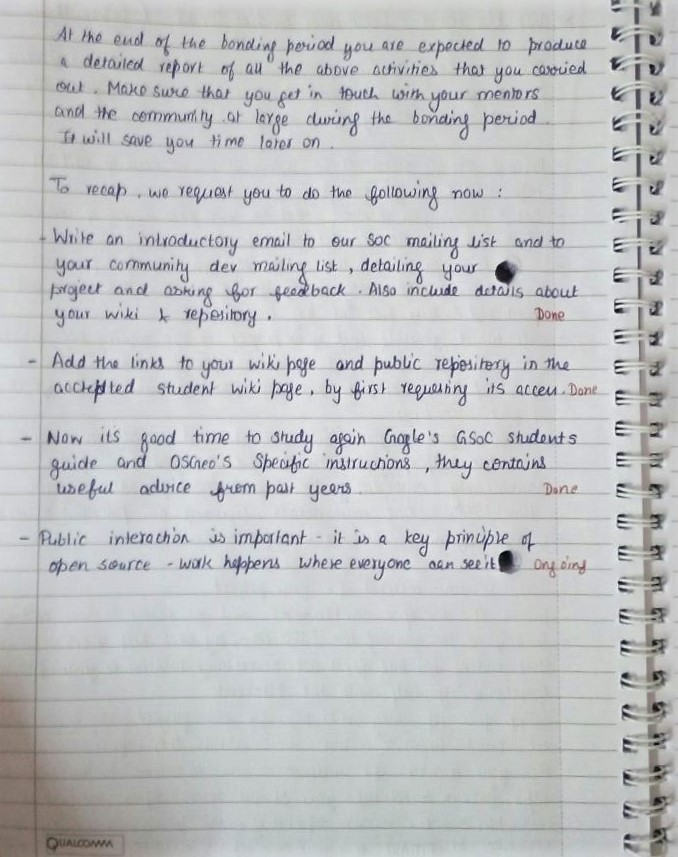 At the end of the bonding period you are expected to produce
a detailed report of all the above activities that you carried
out. Make sure that you get in touch with your mentors
and the community at large during the bonding period.
It will save you time later on.
To recap, we request you to do the following now :
- Write an introductory email to our SOC mailing list and to
your community dev mailing list, detailing your
project and asking for feedback. Also include details about
your wiki & repository. Done
- Add the links to your wiki page and public repository in the
acctepted student wiki page, by first requesting its access. Done
- Now it's good time to study again Google's GSoC students
guide and OSGeo's Specific instructions, they contains
useful advice from past years. Done
- Public interaction is important - it is a key principle of
open source - work happens where everyone can see it Ongoing
QUALCOMM